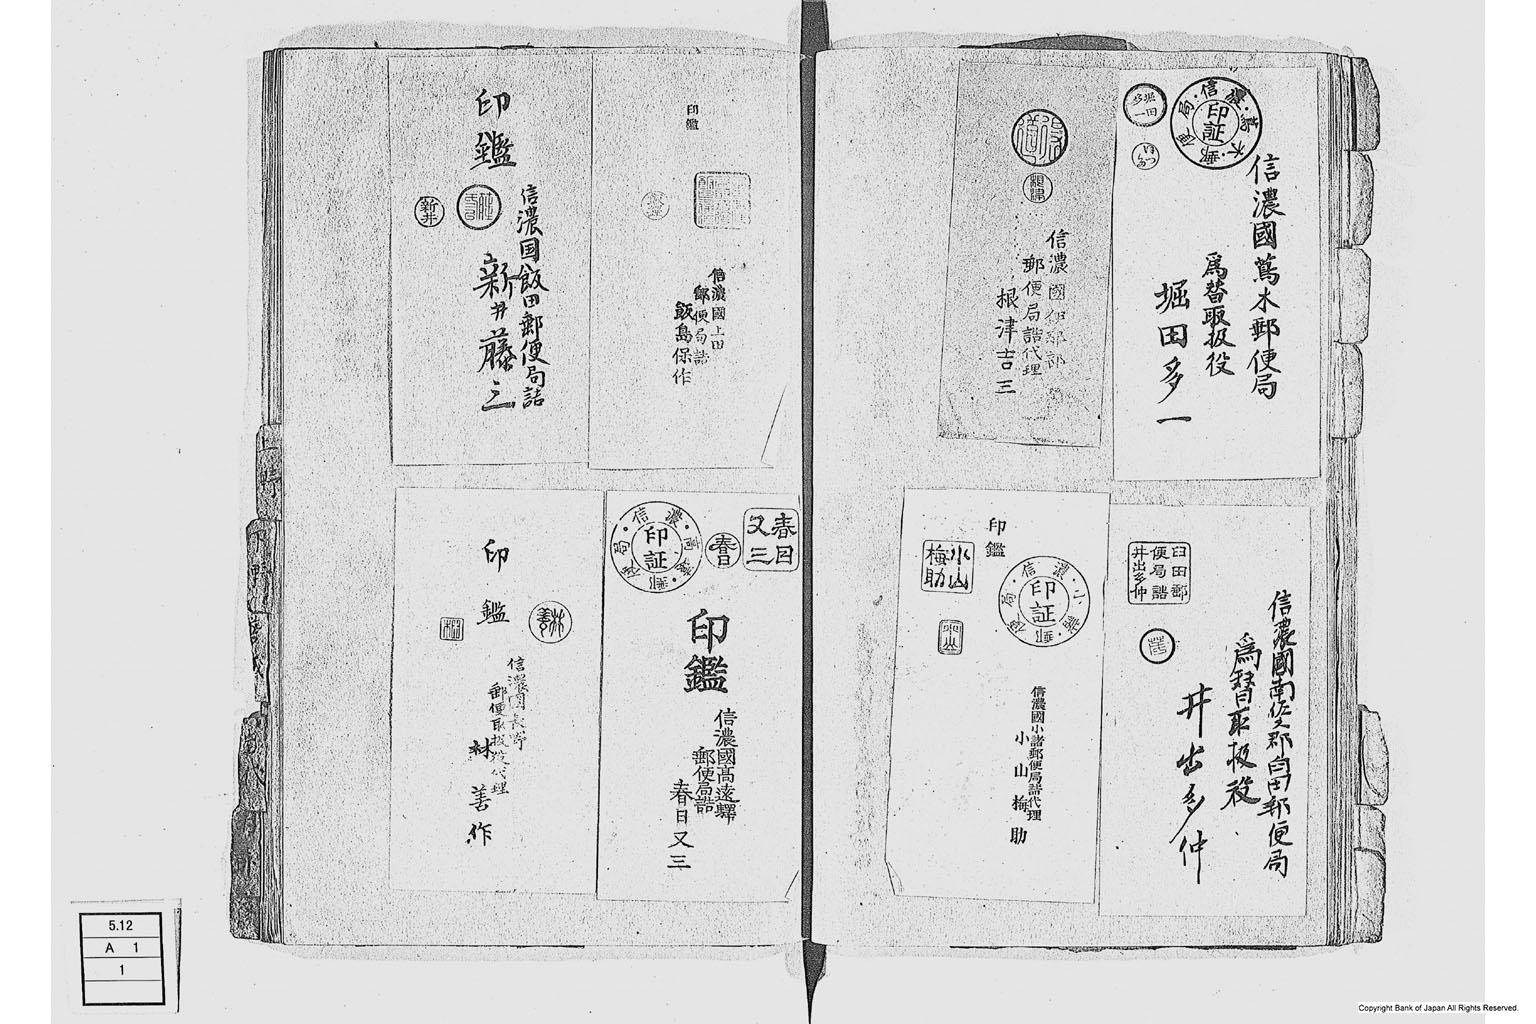 信濃・蔦木・郵便局
印証
堀田
多一
信濃國蔦木郵便局
為替取扱役
堀田多一
根津
信濃國伊那郡
郵便局詰代理
根津吉三
臼田郵
便局詰
井出多仲
信濃國南佐久郡臼田郵便局
為替取扱役
井出多仲
印鑑
小山
梅助
信濃・小諸・郵便局
印証
小山
信濃國小諸郵便局詰代理
小山梅助
印鑑
信濃國上田
郵便局詰
飯島保作
印鑑
新井
信濃国飯田郵便局詰
新井藤三
春日
又三
春日
信濃・高遠・郵便局
印証
印鑑
信濃國高遠驛
郵便局詰
春日又三
印鑑
林
信濃國長野
郵便取扱役代理
林善作
5.12
A 1
1
Copyright Bank of Japan All Rights Reserved.